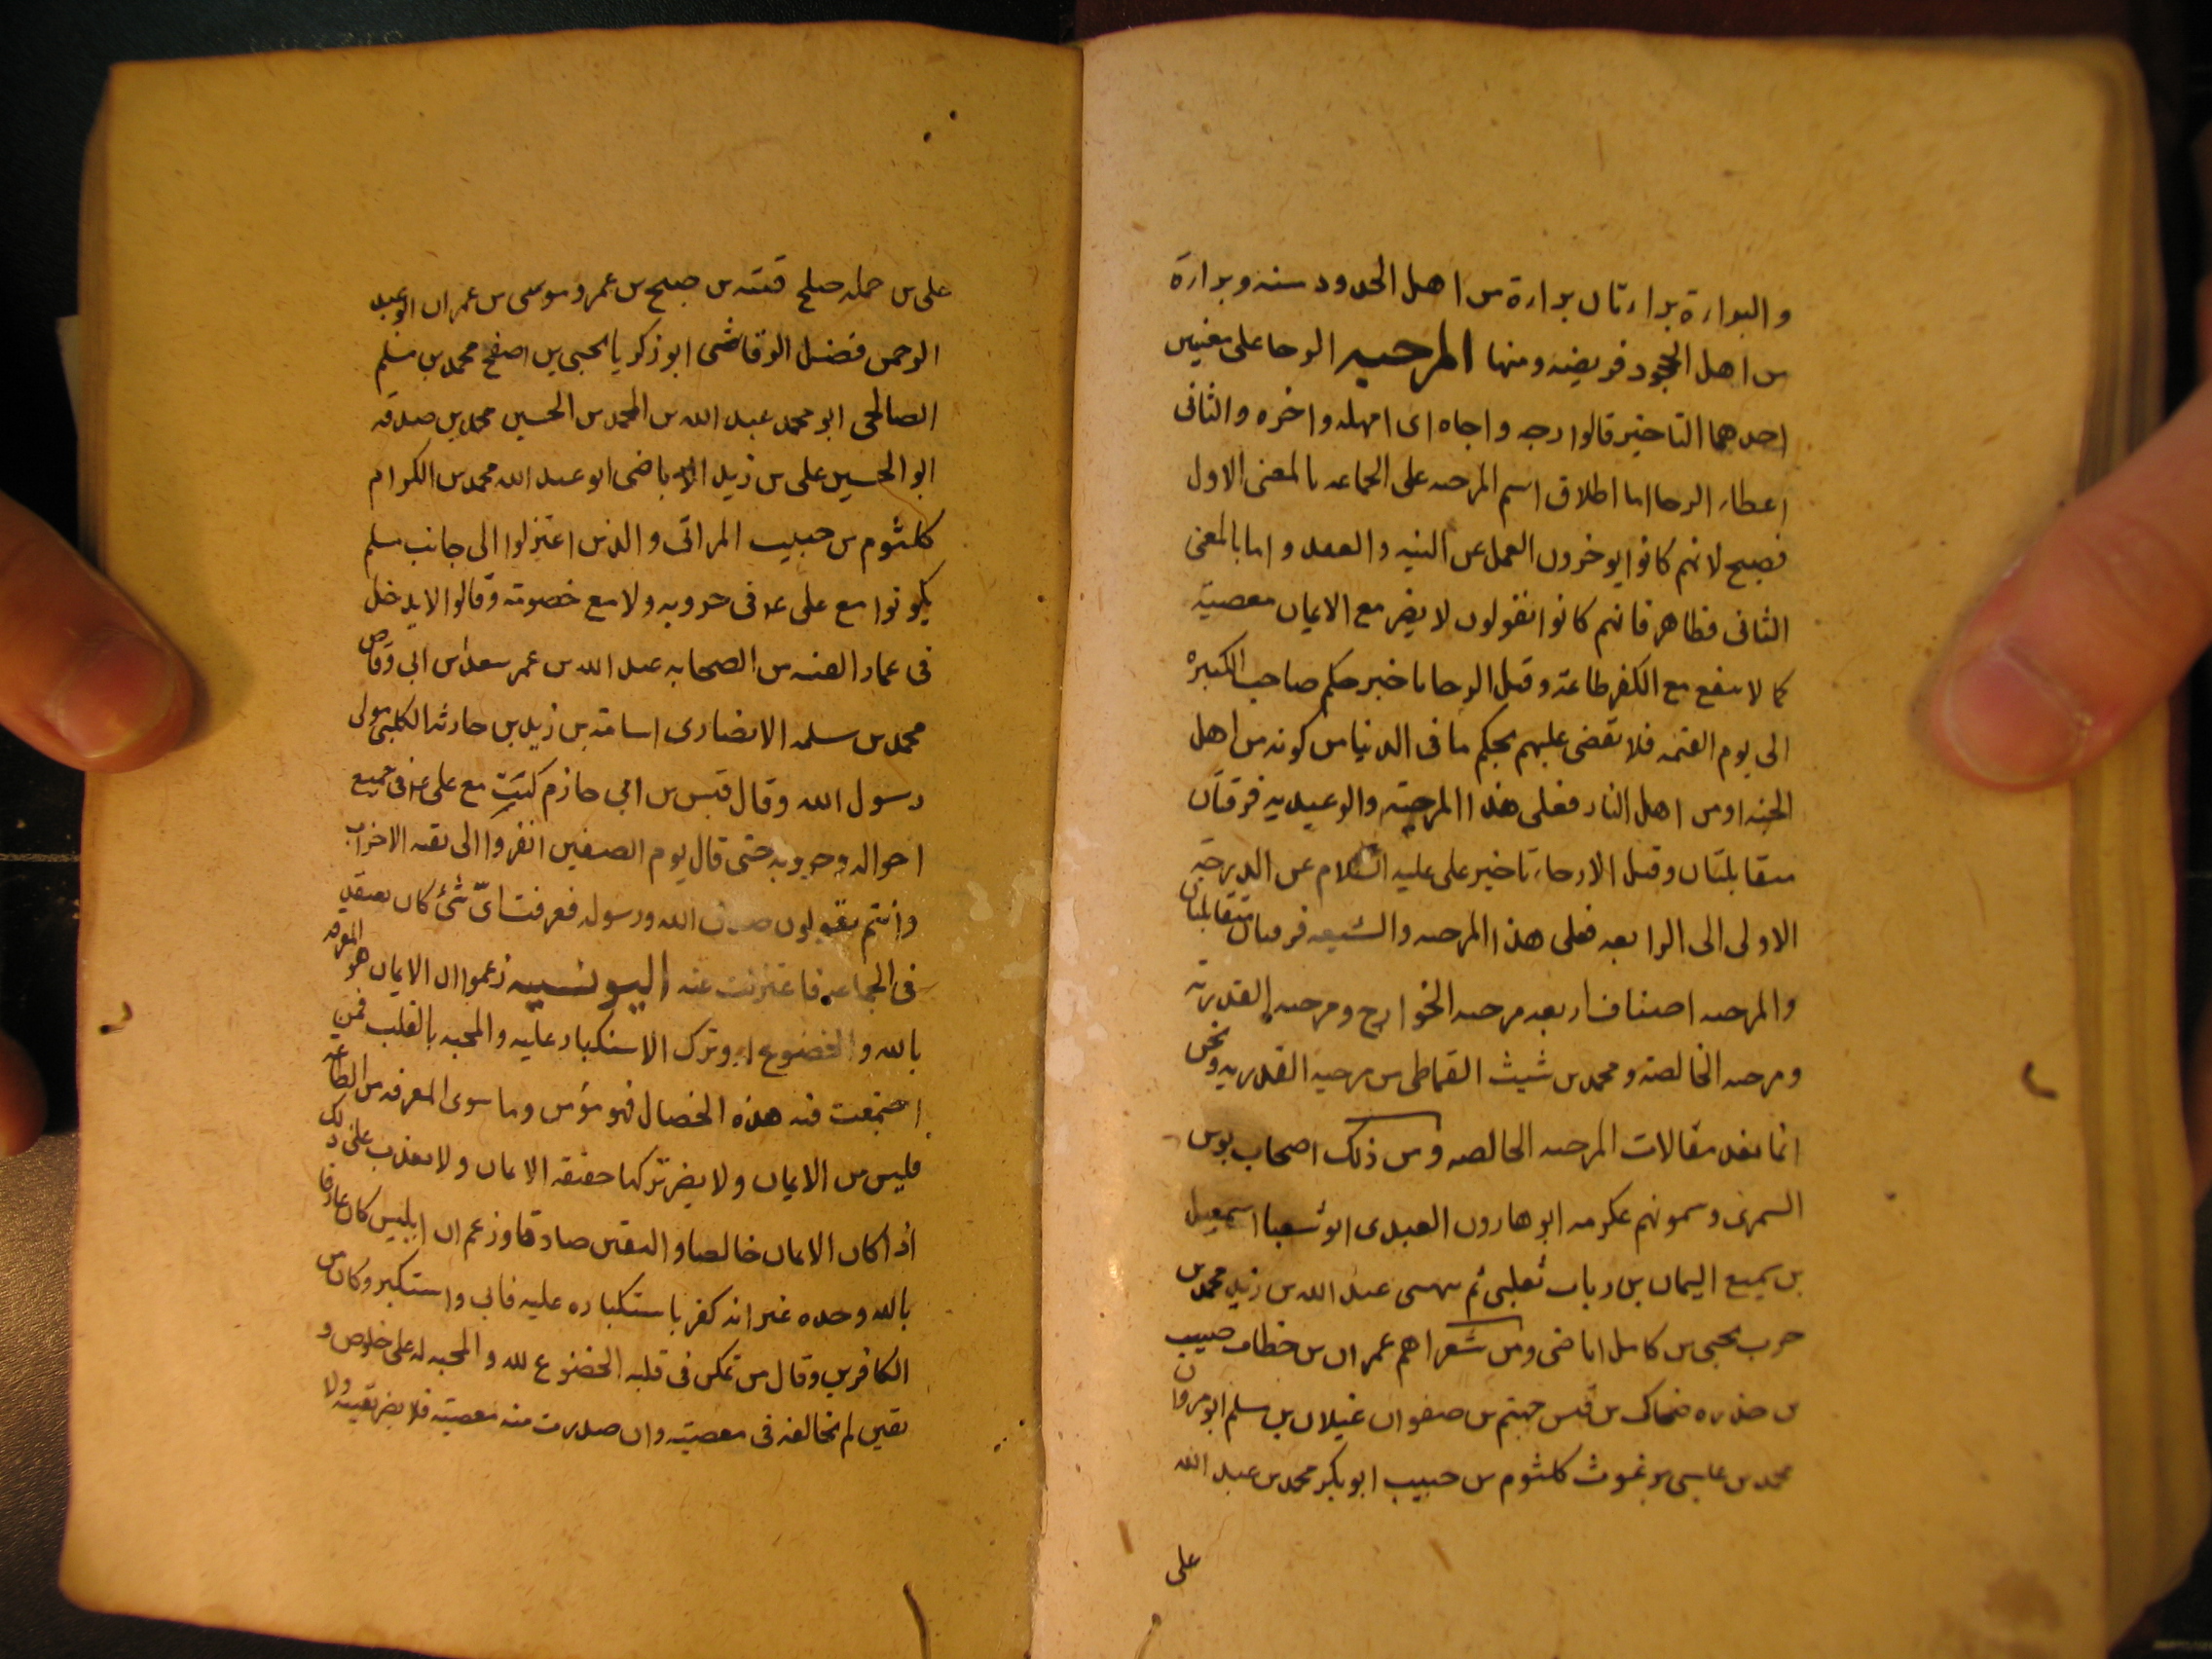 والبراءة براءتان براءة من اهل الحدود سنه وبراءة
من اهل الجحود فريضه ومنها المرحيه الرحا على معنيين
احدهما التاخير قالوا ارجه واخاه اى امهله واخره والثانى
اعطاء الرحا اما اطلاق اسم المرحيه على الجماعه بالمعنى الاول
فصيح لانهم كانوا يوخرون العمل عن النيه والعقد واما بالمعنى
الثانى فظاهر فانهم كانوا يقولون لا يضر مع الايمان معصيته
كما لا ينفع مع الكفر طاعة وقيل الرحا تاخير حكم صاحب الكبيره
الى يوم القيمه فلا تقضى عليهم بحكم ما فى الدنيا من كونه من اهل
الجنه او من اهل النار فعلى هذا المرجئه والوعيديه فرقتان
متقابلتان وقيل الارحاء تاخير على عليه السلام عن الدرجه
الاولى الى الرابعه فعلى هذا المرحيه والشيعه فرقتان متقابلتان
والمرحيه اصناف اربعه مرحيه الخوارج ومرحيه القدريه
ومرحيه الخالصة ومحمد بن شيث القماطى من مرحيه القدريه ونحن
انما نعد مقالات المرحيه الخالصه ومن ذلك اصحاب يونس
السمرى وسمونهم عكرمه ابو هارون العبدى ابو شعبا اسمعيل
بن سميع اليمان بن رباب ثعلبى ثم بيهسى عبد الله بن زيد محمد بن
حرب يحيى بن كامل اباضى ومن شعراهم عمران بن خطاف حبيب
بن خدره ضحاك بن قيس جهتم بن صفوان غيلان بن سلم ابو مروان
محمد بن عايسى برغوث كلثوم بن حبيب ابو بكر محمد بن عبد الله
على
على بن حمله صلح قتيبه بن صبح بن عمرو موسى بن عمران ابو عبد
الرحمن فضل الرقاشى ابو زكريا يحيى بن اصفح محمد بن مسلم
الصالحى ابو محمد عبد الله بن المحمد بن الحسين محمد بن صدقه
ابو الحسين على بن زيد الاباضى ابو عبد الله محمد بن الكرام
كلثوم بن حبيب المراتى والذين اعتزلوا الى جانب مسلم
يكونوا مع على ع فى حروبه ولا مع خصومته وقالوا لا يدخل
فى عمار الفتنه من الصحابه عبد الله بن عمر سعد بن ابى وقاص
محمد بن سلمه الانصارى اسامة بن زيد بن حارثه الكلبى مولى
رسول الله وقال قيس بن ابى حازم كنت مع على ع فى جميع
احواله وحروبه حتى قال يوم الصفين انفروا الى بقيه الاحزاب
وانتم تقولون صدق الله ورسوله فعرفت اىّ شئ كان يعتقد
فى الجماعه فاعتزلت عنه اليونسيه زعموا ان الايمان هو المعرفه
بالله والخضوع له وترك الاستكبار عليه والمحبه بالقلب فمن
اجتمعت فيه هذه الخصال فهو مؤمن وما سوى المعرفه من الطاعه
فليس من الايمان ولا يضر تركها حقيقه الايمان ولا يعذب على ذلك
اذا كان الايمان خالصا واليقين صادقا وزعم ان ابليس كان عارفا
بالله وحده غير انه كفر باستكباره عليه فابى واستكبر وكان من
الكافرين وقال من تمكن فى قلبه الخضوع لله والمحبه له على خلوص و
يقين لم يخالفه فى معصيته وان صدرت منه معصيته فلا يضر بيقينه ولا